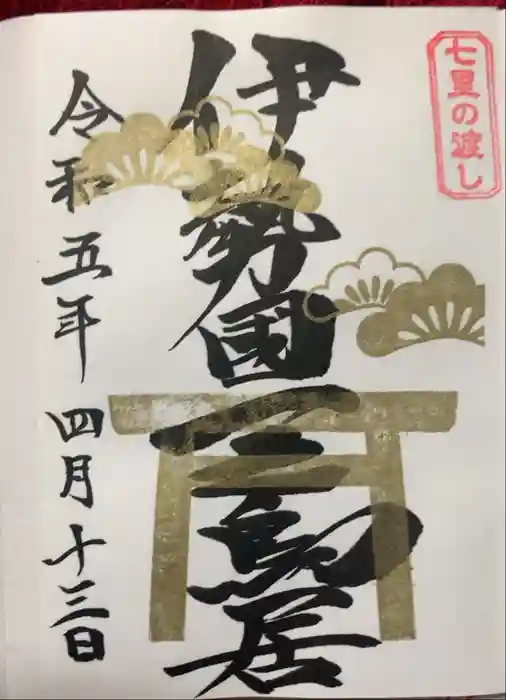 七里の渡し
伊勢國一之鳥居
令和五年四月十三日